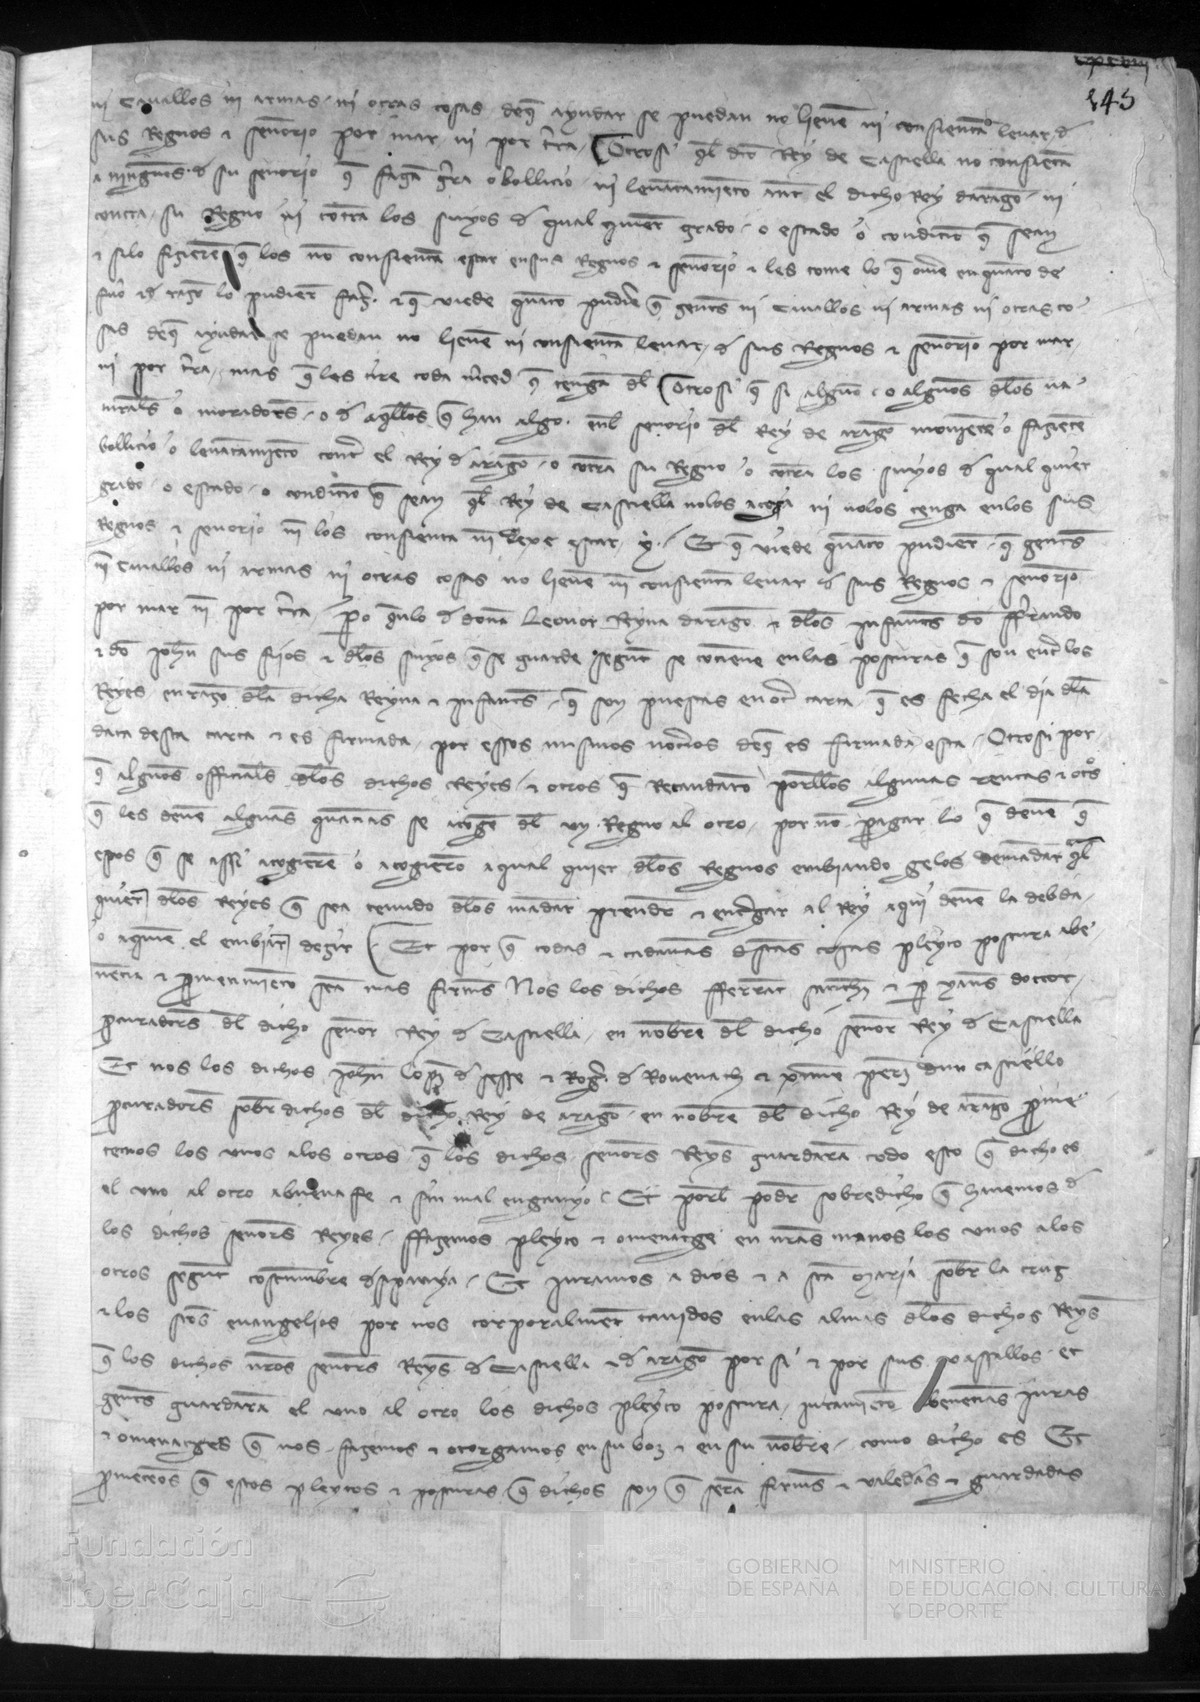 145
ni cauallos ni armas ni otras cosas deq̄ ayudar se puedan no lieuē ni consientā leuar d
sus Regnos τ señorio por mar ni por tr̄ra Otrosi q̄l dc̄o Rey de Castiella no consienta
a ningunos d su señorio q̄ fagā gr̄ra o bollicio ni leuātamiēto ant̄ el dicho Rey daragō ni
contra su Regno ni cōtra los suyos d qual quier grado o estado o condiciō q̄ sean
τ silo fizierē q̄ los nō consientā estar en sus Regnos τ señorio τ les tome lo q̄ ouierē en quāto de
fuō τ d razō lo pudierē faz̄ τ q̄ viede quāto pudiere q̄ gent̄s ni cauallos ni armas ni otras co
sas deq̄ ayudar se puedan no lieuē ni consientā leuar d sus Regnos τ señorio por mar
ni por tr̄ra mas q̄ les tire toda m̄ced q̄ tengā dl̄ Otrosi q̄ si algūo o algunos dlos na
turals̄ o moradors̄ o d aq̄llos q̄ han algo enl̄ señorio dl̄ Rey de aragō mouiese o fiziese
bollicio o leuātamiēto contr̄ el Rey d aragō o cōtra su Regno o cōtra los suyos d qual quier
grado o estado o condiciō q̄ sean q̄l Rey de Castiella nolos acoja ni nolos tenga enlos sus
Regnos τ señorio nī los consienta nī dexe estar y Et q̄ viede quāto pudierē q̄ gent̄s
nī cauallos ni armas ni otras cosas no lieuē nī consientā leuar d sus Regnos τ señorio
por mar nī por tr̄ra p̄o q̄nlo d dona Leonor Reyna daragō τ dlos infant̄s dō fferrando
τ dō Joh̄n sus fijos τ dlos suyos q̄ se guarde segūt se cōtiene enlas posturas q̄ son entr̄ los
Reyes en razō dla dicha Reyna τ infant̄s q̄ son puestas en otr̄ carta q̄ es fecha el dia dla
data desta carta τ es firmada por essos mismos notarios deq̄ es firmada esta Otrosi por
q̄ algunos officials̄ dlos dichos Reyes τ otros q̄ Recaudarō porellos algunas rentas τ otr̄s
q̄ les deuē algunas quātias se acogē dl̄ un Regno al otro por nō pagar lo q̄ deuē q̄
estos q̄ se assi acogierē o acogierō a qual quier dlos Regnos embiando gelos demādar q̄l
quier dlos Reyes q̄ sea tenudo dlos mādar prender τ entregar al Rey aqui deuē la debda
o aquiē el embiar dezir Et por q̄ todas τ cadaunas dstas cosas pleyto postura abe
nēcia τ p̄metimiēto seā mas firms̄ Nos los dichos fferrāt sanch̄z τ p yans̄ doctor
p̄curadors̄ dl̄ dicho señor Rey d Castiella en nōbre dl̄ dicho señor Rey d Castiella
Et nos los dichos Joh̄n lop̄z d sesse τ Roḡ d Rouenach τ ximē per̄z dun castiello
p̄curadors̄ sobr̄ dichos dl̄ dicho Rey de aragō en nōbre dl̄ dicho Rey de aragō p̄me
temos los unos alos otros q̄ los dichos señors̄ Reys̄ guardarā todo esto q̄ dicho es
el uno al otro abuena fe τ sin mal enganyo Et porl̄ podr̄ sobredicho q̄ hauemos d
los dichos señors̄ Reyes ffazemos pleyto τ omenatge en nr̄as manos los unos alos
otros segūt costumbre dispanya Et juramos a dios τ a sctā maria sobr̄ la cruz
τ los sctōs euangelios por nos corporalmēt tanidos enlas almas dlos dichos Reys̄
q̄ los dichos nr̄os señors̄ Reys̄ d Castiella τ d aragō por si τ por sus vassallos et
gent̄s guardarā el uno al otro los dichos pleyto postura juramēto abenēcias juras
τ omenatges q̄ nos fazemos τ otorgamos en su boz τ en su nōbre como dicho es Et
p̄metemos q̄ estos pleytos τ posturas q̄ dichos son q̄ serā firms̄ τ ualederas τ guardadas
Fundación
iberCaja
GOBIERNO
DE ESPAÑA
MINISTERIO
DE EDUCACION, CULTURA
Y DEPORTE